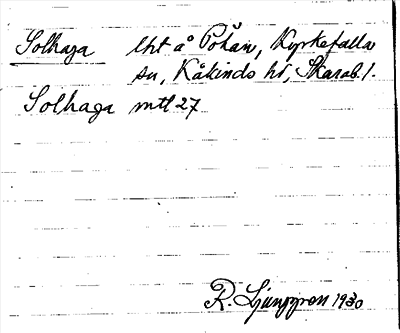 Solhaga lht å Pőkan, Kyrkefalla
sn, Kåkinds hd, Skarab. l.
Solhaga mtl 27
R. Ljunggren 1930